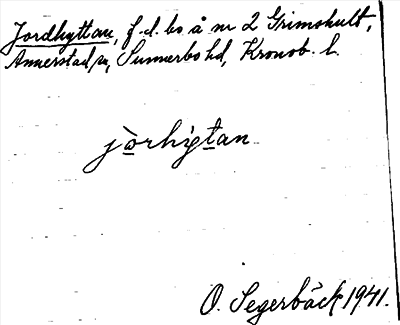 Jordhyttan, f.d. bo å nr 2 Grimshult,
Annerstad sn, Sunnerbo hd, Kronob. l.
jòrhỳtan
O. Segerbäck 1941.